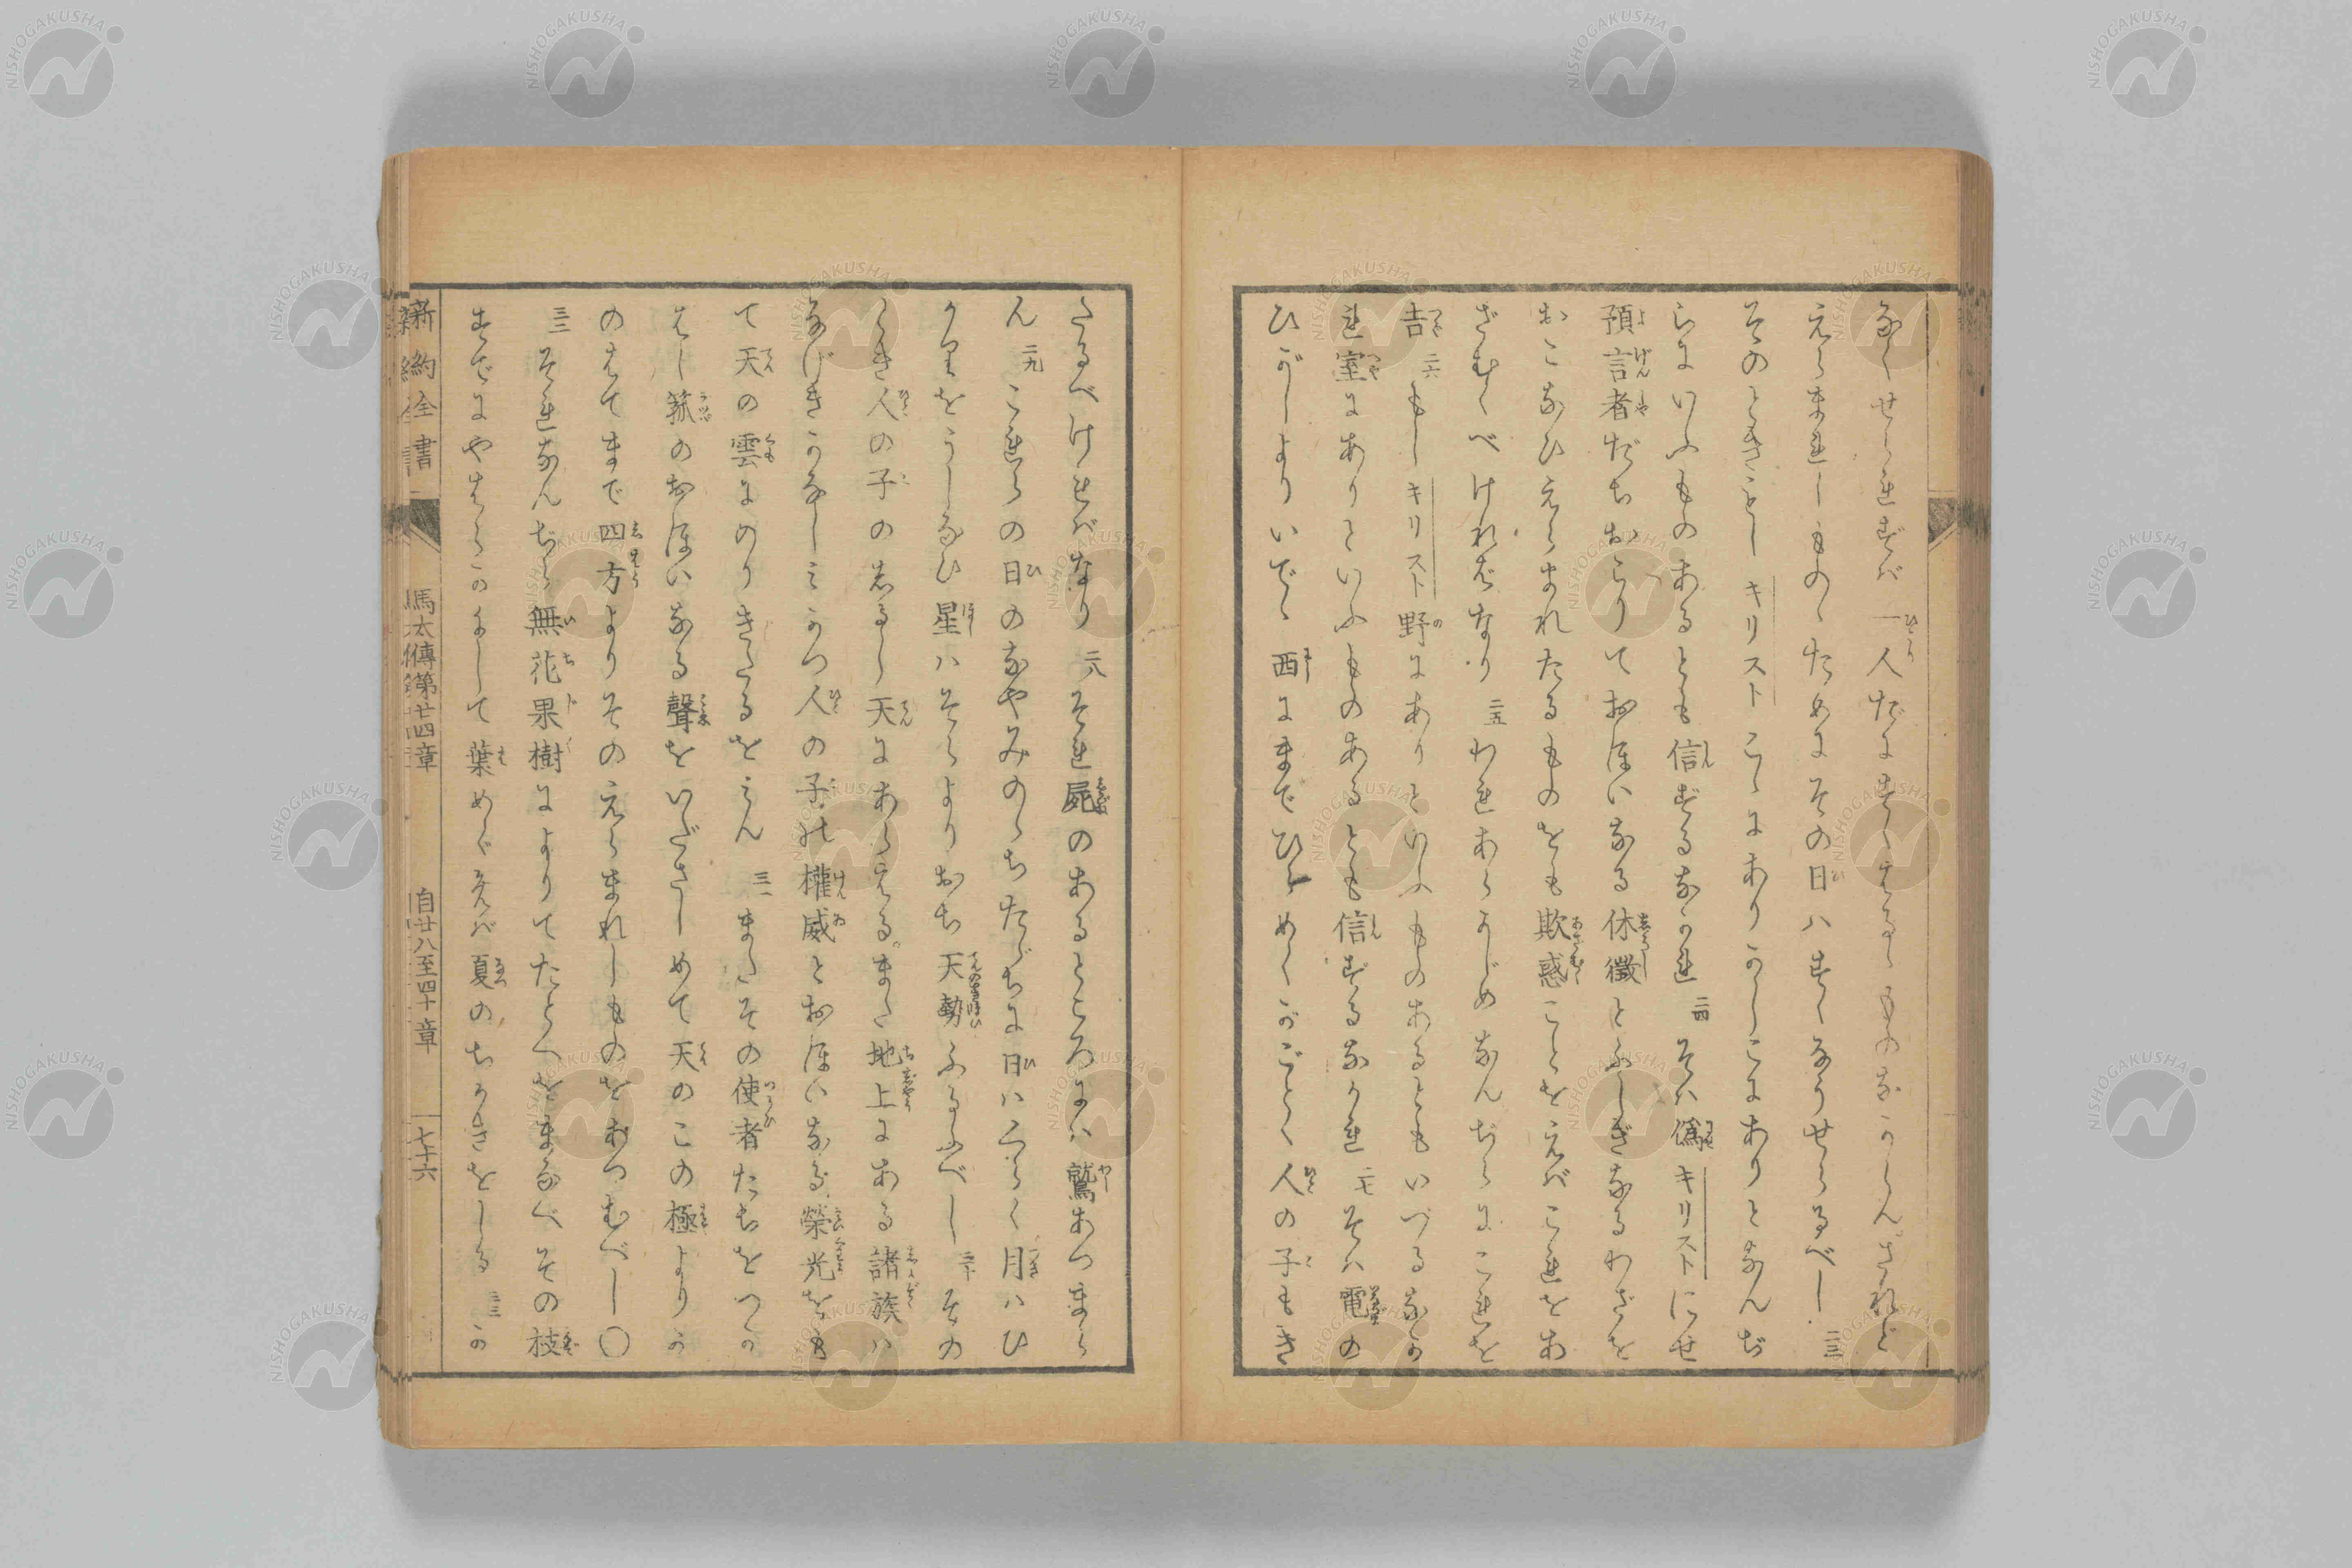 なくせられずば一人だにすくはるゝものなからんされど
えらまれしものゝためにその日ハすくなうせらるべし 二三
そのときもしキリストこゝにありかしこにありとなんぢ
らにいふものあるとも信ずるなかれ 二四 そハ偽キリストにせ
預言者だちおこりておほいなる休徴とふしぎなるわざを
おこなひえらまれたるものをも欺惑ことをえバこれをあ
ざむくべければなり 二五 われあらかじめなんぢらにこれを
告 二六 もしキリスト野にありといふものあるともいづるなか
れ室にありといふものあるとも信ずるなかれ 二七 そハ電の
ひがしよりいでゝ西にまでひらめくがごとく人の子もき
たるべければなり 二八 それ屍のあるところにハ鷲あつまら
ん 二九 これらの日のなやみのゝちたゞちに日ハくらく月ハひ
かりをうしなひ星ハそらよりおち天勢ふるふべし 三十 その
とき人の子のしるし天にあらはるまた地上にある諸族ハ
なげきかなしみかつ人の子の權威とおほいなる榮光をも
て天の雲にのりきたるをみん 三一 またその使者たちをつか
はし箛のおほいなる聲をいださしめて天のこの極よりか
のはてまで四方よりそのえらまれしものをあつむべし〇
三二 それなんぢら無花果樹によりてたとへをまなべその枝
すでにやはらかにして葉めぐめバ夏のちかきをしる 三三 か
新約全書 馬太傳第廿四章 自廿八至四十章 七十六
NISHOGAKUSHA